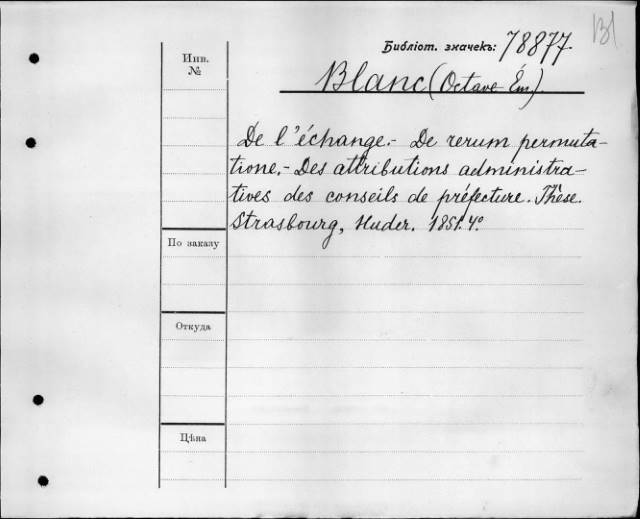 Bl
Библіот. значекъ: 78877.
Инв.
№
Blanc (Octave Ém)
De l'échange.- De rerum permuta-
tione.- Des attributions administra-
tives des conseils de préfecture. Thèse.
Strasbourg, Huder. 1851. 4º
По заказу
Откуда
Цѣна